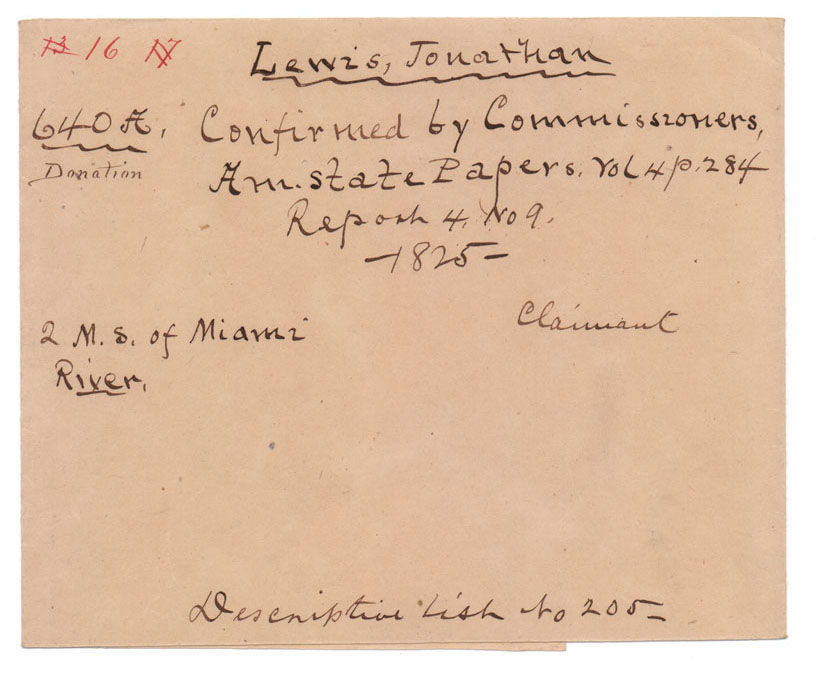 13 16 17
Lewis, Jonathan
640 A. Confirmed by Commissioners,
Donation
Am. State Papers. Vol 4 p. 284
Report 4. No 9.
—1825—
2 M. S. of Miami
River.
Claimant
Descriptive List No 205—